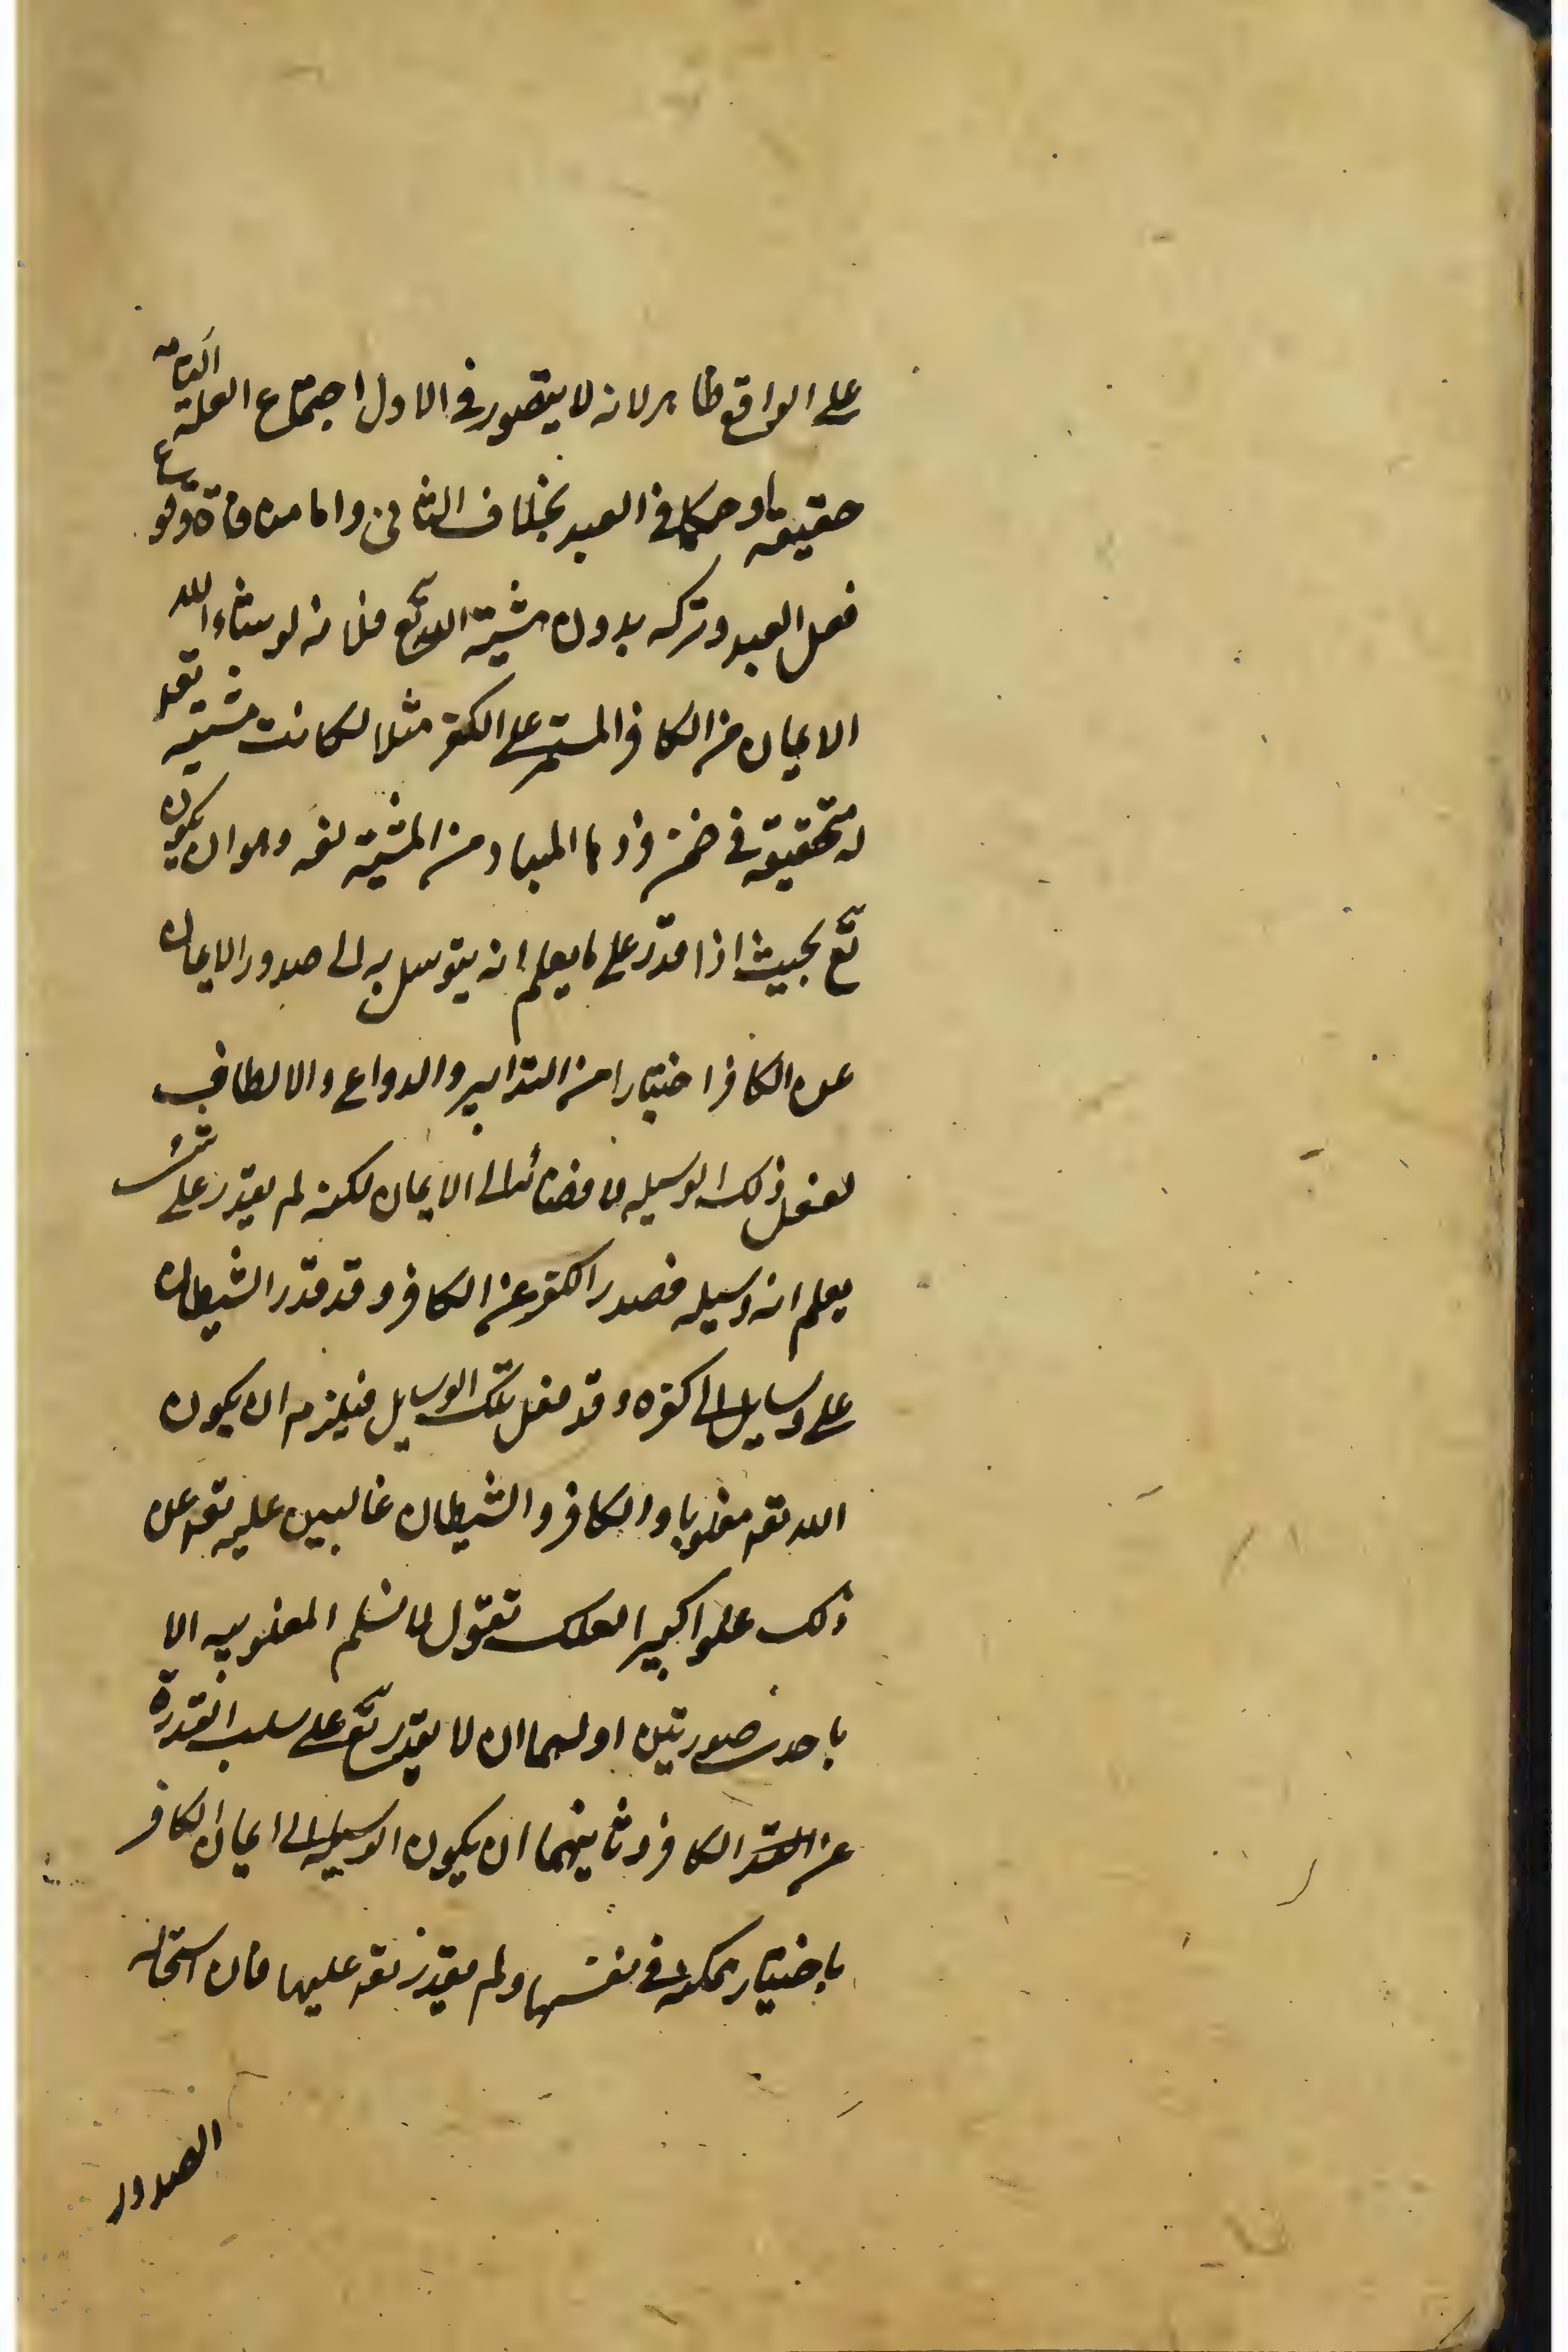 على الواقع ظاهر لانه لا يتصور في الاول اجتماع العلة التامة
حقيقة او حكما في العبد بخلاف الثاني واما منافاة وقوع
فعل العبد وتركه بدون مشية الله تع فلانه لو شاء الله
الايمان من الكافر المستمر على الكفر مثلا لكانت مشيته تعه
متحققة في ضمن فردها المتبادر من المشية لغة وهو ان يكون
تع بحيث اذا قدر على ما يعلم انه يتوسل به الى صدور الايمان
عن الكافر اختيارا من التدابير والدواعي والالطاف
لفعل ذلك الوسيله لافضائه الى الايمان لكنه لم يقدر على شئ
يعلم انه وسيله فصدر الكفر عن الكافر وقد قدر الشيطان
على وسايل الى كفره وقد فعل تلك الوسايل فيلزم ان يكون
الله تعه مغلوبا والكافر والشيطان غالبين عليه تعه عن
ذلك علوا كبيرا لعلك تقول لا نسلم المغلوبيه الا
باحدى صورتين اوليهما ان لا يقدر تع على سلب القدرة
عن الكافر وثانيهما ان يكون الوسيله الى ايمان الكافر
باختيار ممكنة في نفسها ولم يقدر تعه عليها فان استحاله
الصدور